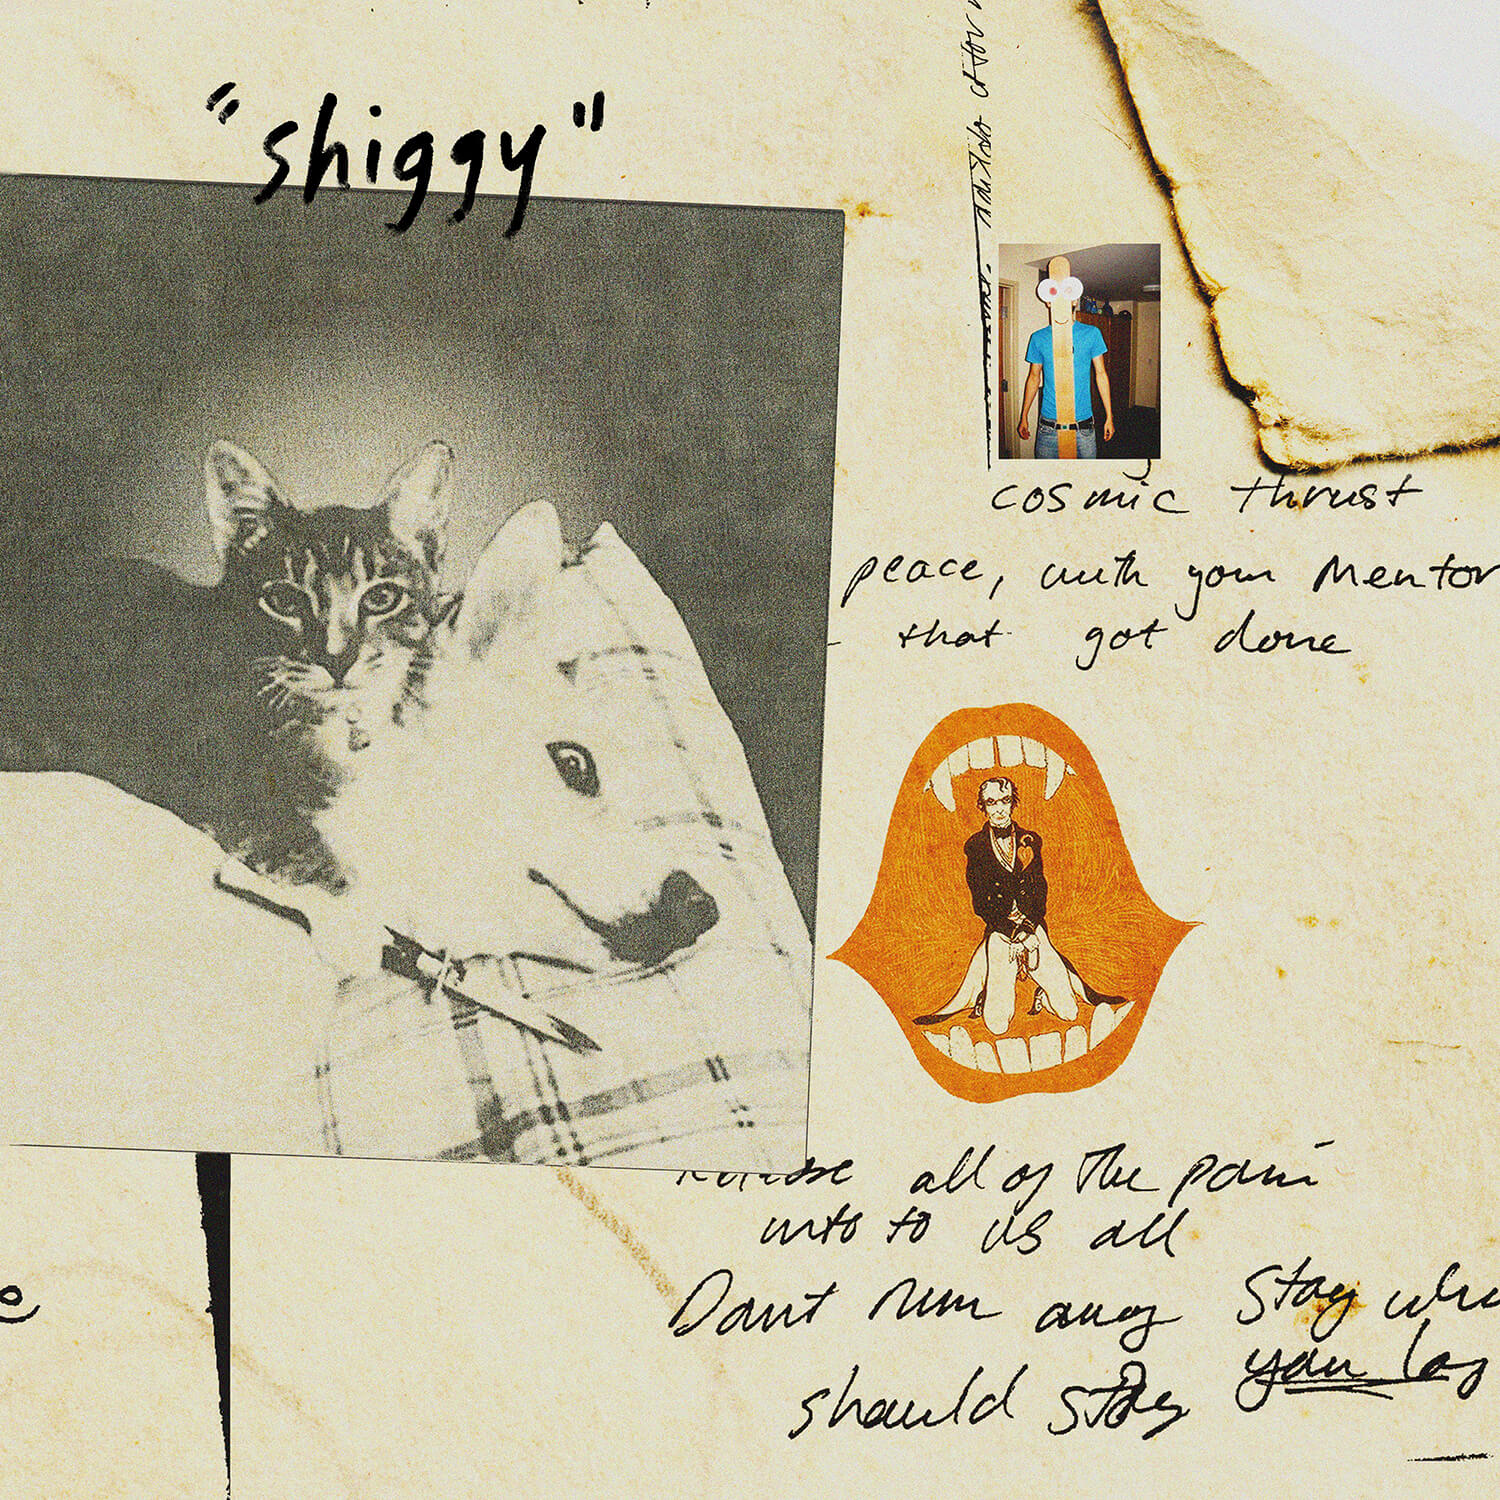 "shiggy"
cosmic thrust
peace, with your Mentor
that got done
all of the pain
into to us all
Don't run away Stay
should stay you lay